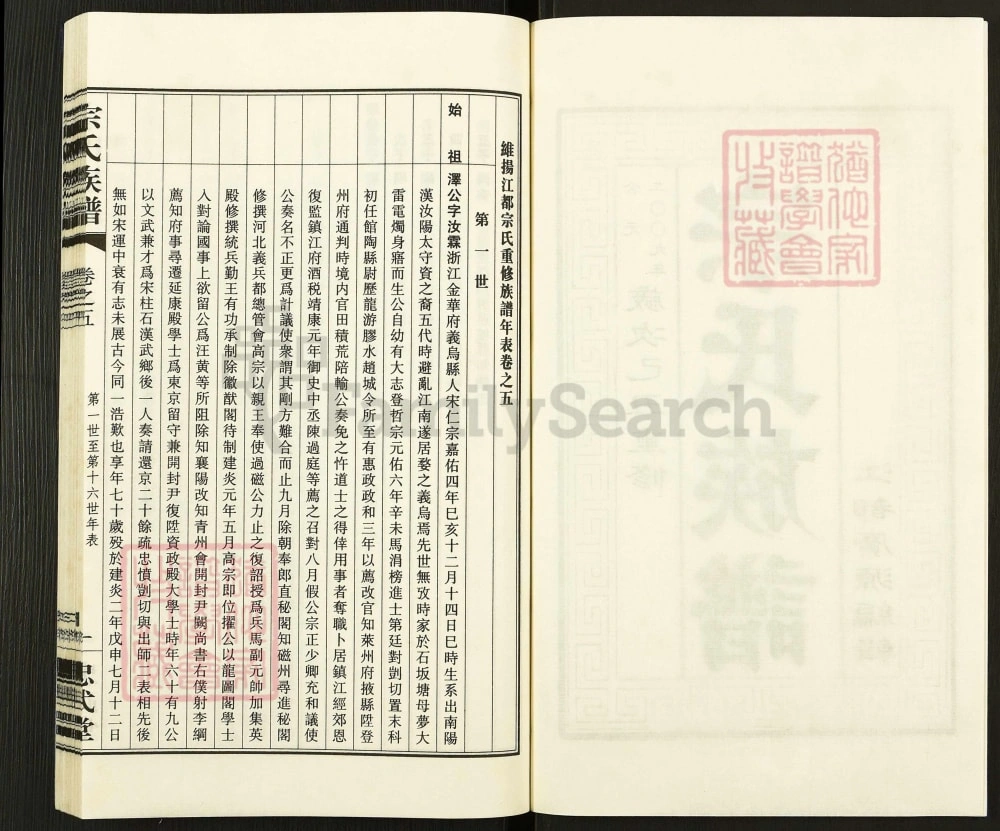 維揚江都宗氏重修族譜年表卷之五
第一世
始祖
澤公字汝霖浙江金華府義烏縣人宋仁宗嘉佑四年巳亥十二月十四日巳時生系出南陽
漢汝陽太守資之裔五代時避亂江南遂居婺之義烏焉先世無攷時家於石坂塘母夢大
雷電燭身寤而生公自幼有大志登哲宗元佑六年辛未馬涓榜進士第廷對剴切置末科
初任館陶縣尉歷龍游膠水趙城令所至有惠政政和三年以薦改官知萊州府掖縣陞登
州府通判時境内官田積荒陪輸公奏免之忤道士之得倖用事者奪職卜居鎮江經郊恩
復監鎮江府酒税靖康元年御史中丞陳過庭等薦之召對八月假公宗正少卿充和議使
公奏名不正更爲計議使衆謂其剛方難合而止九月除朝奉郎直秘閣知磁州尋進秘閣
修撰河北義兵都總管會高宗以親王奉使過磁公力止之復詔授爲兵馬副元帥加集英
殿修撰統兵勤王有功承制除徽猷閣待制建炎元年五月高宗即位擢公以龍圖閣學士
人對論國事上欲留公爲汪黄等所阻除知襄陽改知青州會開封尹闕尚書右僕射李綱
薦知府事尋遷延康殿學士爲東京留守兼開封尹復陞資政殿大學士時年六十有九公
以文武兼才爲宋柱石漢武鄉後一人奏請還京二十餘疏忠憤剴切與出師二表相先後
無如宋運中衰有志未展古今同一浩歎也享年七十歲殁於建炎二年戊申七月十二日
宗氏族譜
卷之五
第一世至第十六世年表
一
忠武堂
猶他家
譜學會
收藏
FamilySearch